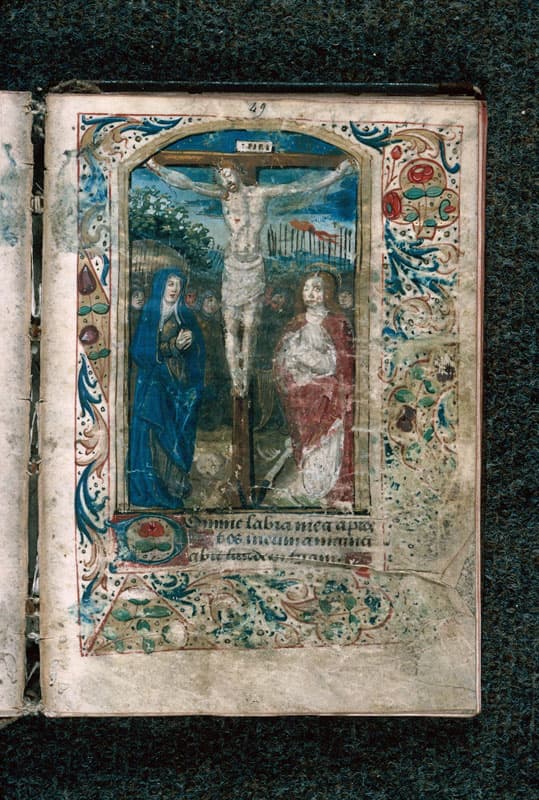 49
INRI
Domine labia mea aperi
es et os meum annunci
abit laudem tuam